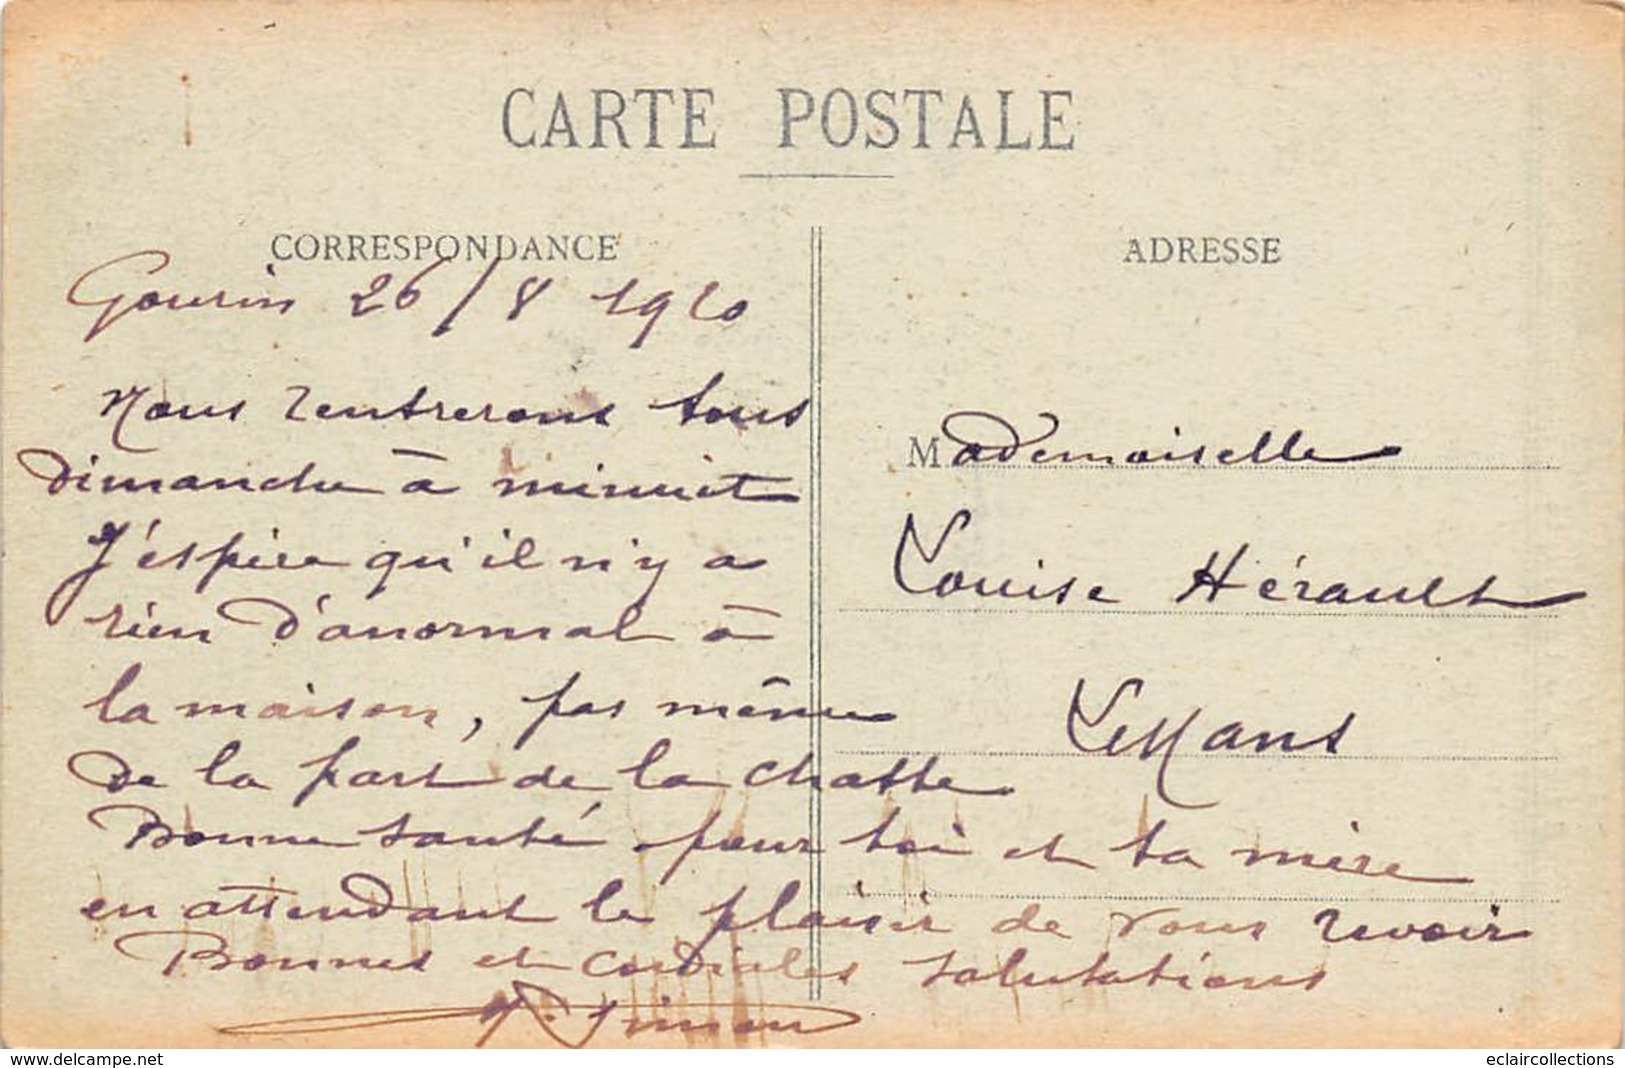 CARTE POSTALE
CORRESPONDANCE
ADRESSE
Gourin 26/8 1920
Nous rentrerons tous
dimanche à minuit
J'espère qu'il n'y a
rien d'anormal à
la maison, pas même
de la part de la chatte
Bonne santé pour toi et ta mère
en attendant le plaisir de vous revoir
Bonnes et cordiales salutations
Simon
Mademoiselle
Louise Hérault
Le Mans
www.delcampe.net
eclaircollections